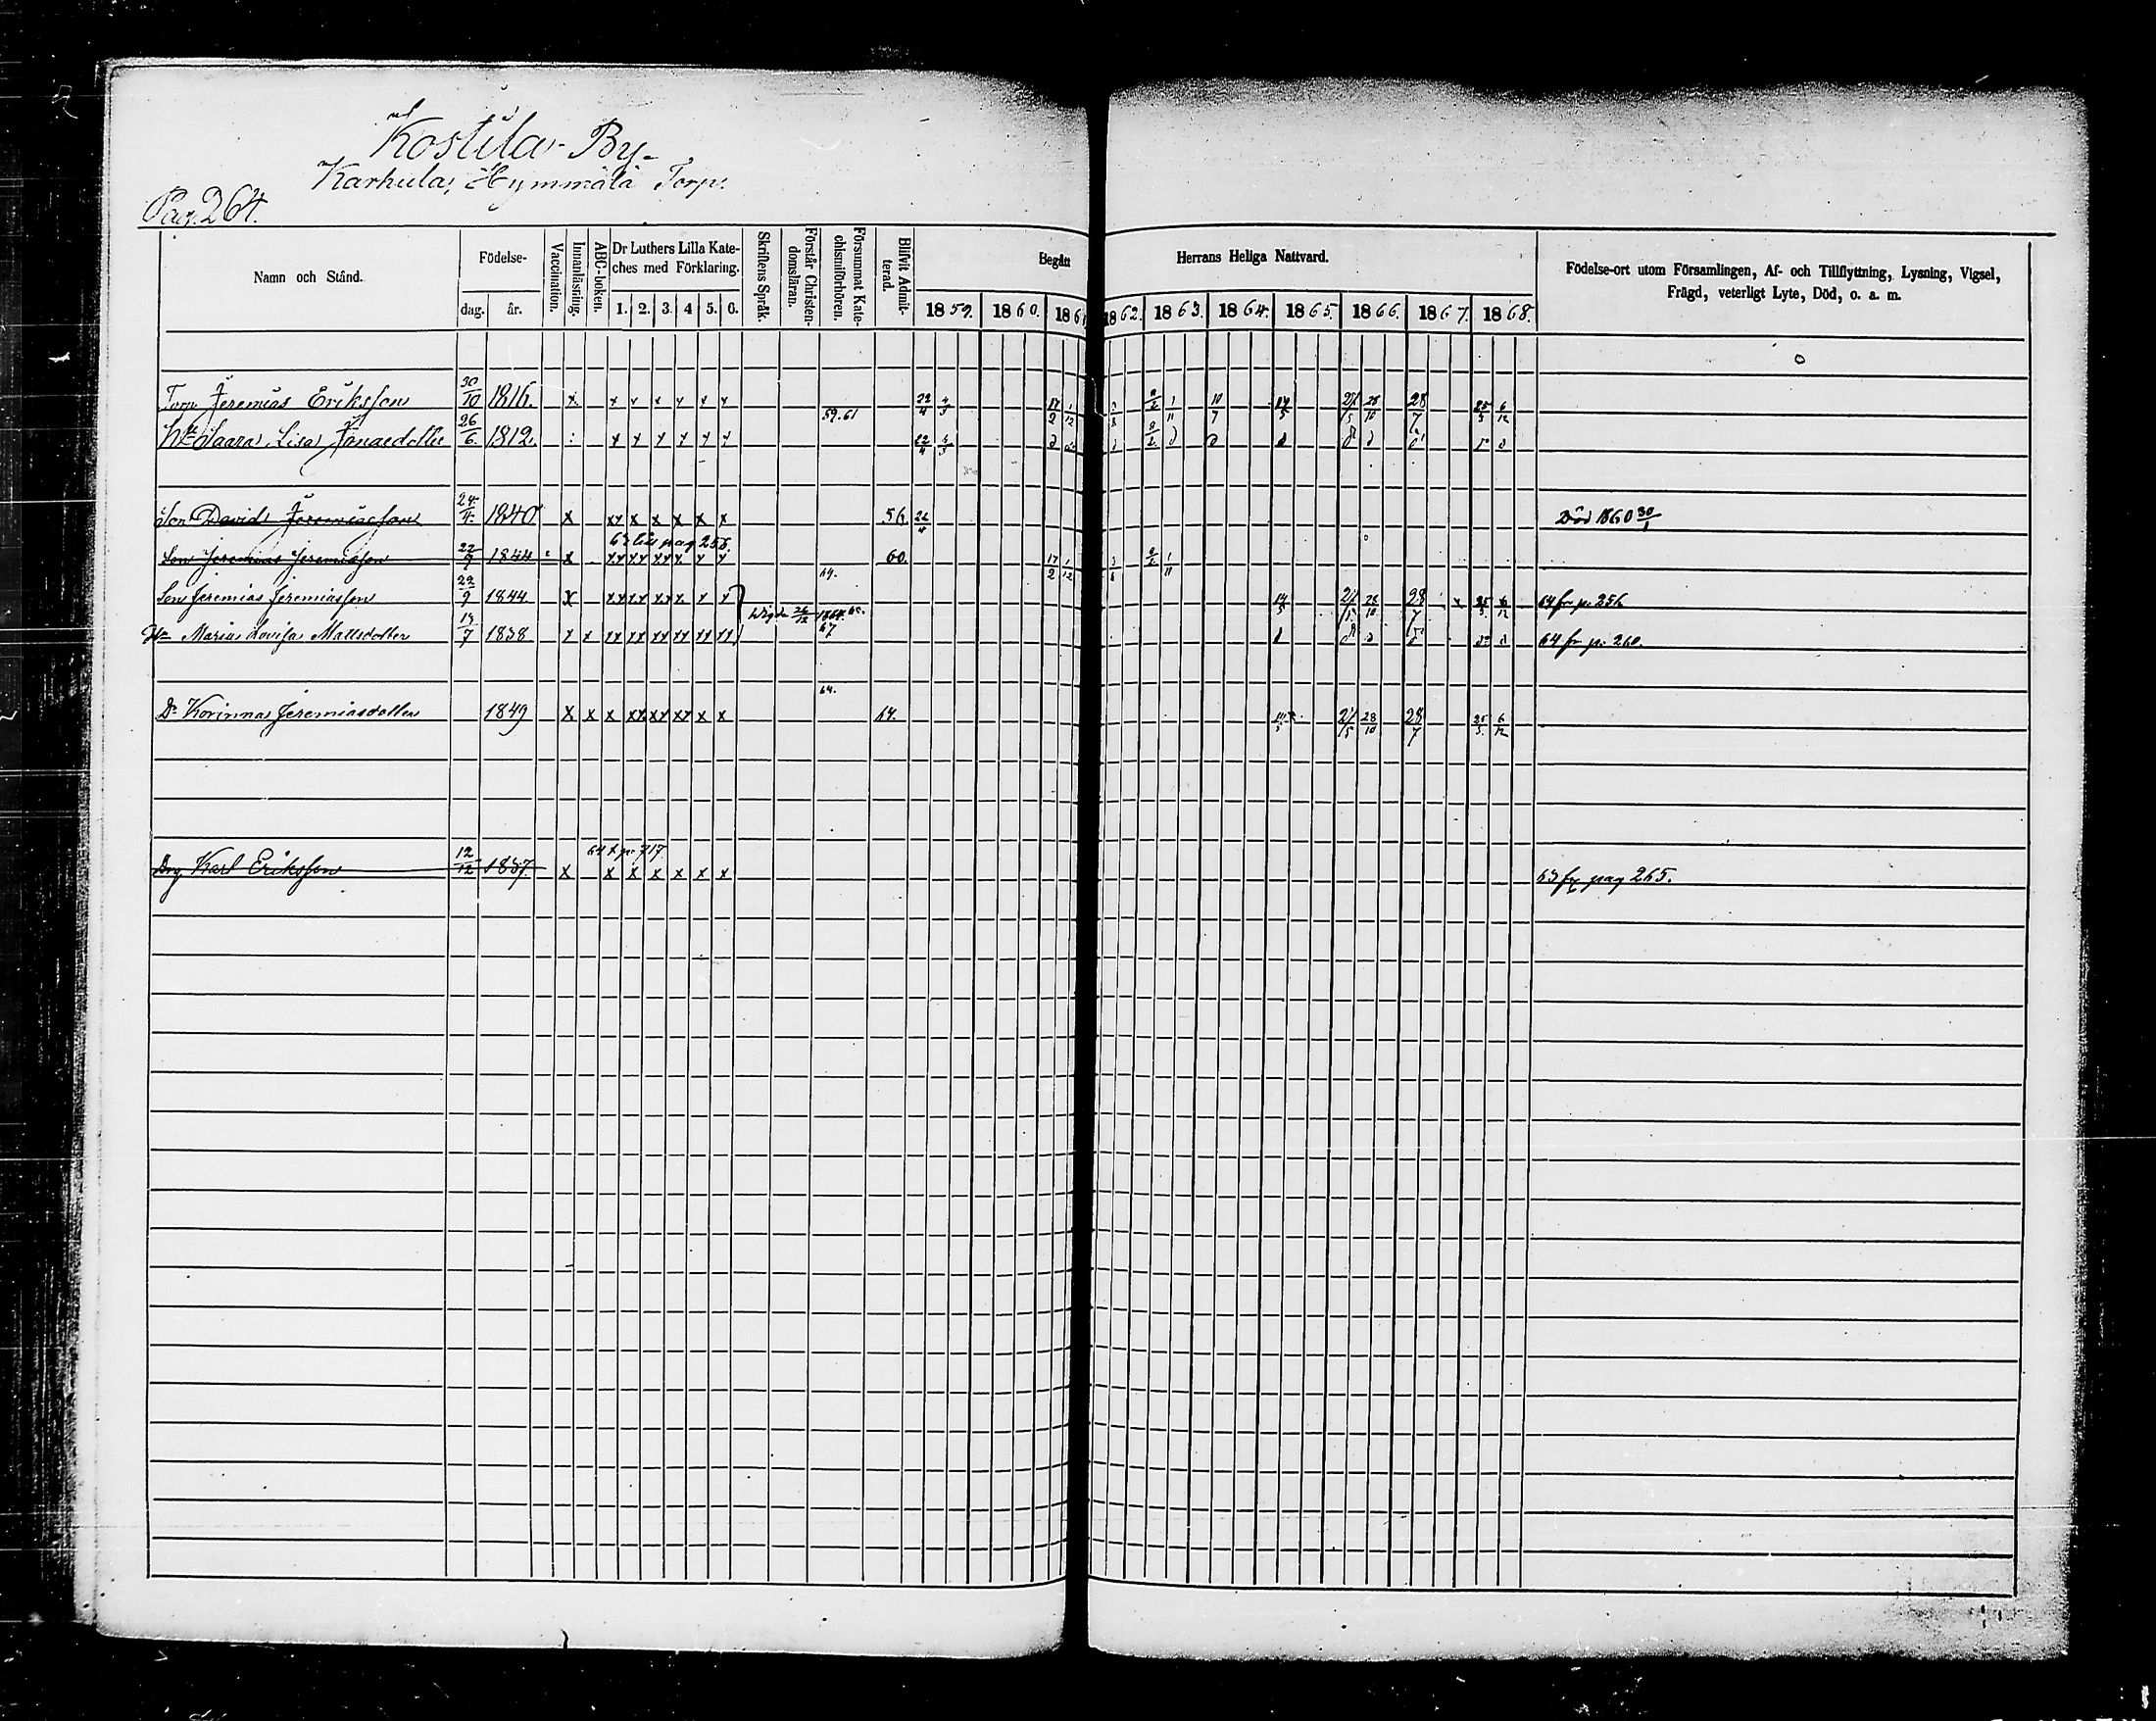 Kostila By
Karhula, Hymmälä Torp.
Pag. 264.
Namn och Stånd.
Födelse-
dag. år.
Vaccination.
Innanläsning.
ABC-boken.
Dr Luthers Lilla Kate-
ches med Förklaring.
1. 2. 3. 4 5. 6.
Skriftens Språk.
Förstår Christen-
domsläran.
Försummat Kate-
chismiförhören.
Blifvit Admit-
terad.
Begått Herrans Heliga Nattvard.
1859. 1860. 1861 1862. 1863. 1864. 1865. 1866. 1867. 1868.
Födelse-ort utom Församlingen, Af- och Tillflyttning, Lysning, Vigsel,
Frägd, veterligt Lyte, Död, o. a. m.
Torp. Jeremias Eriksson 30/10 1816. x x x x x x x 22/4 4/3 17/2 1/12 2/2 1/11 10/7 14/5 21/5 28/10 28/7 25/3 6/12
59.61
Saara Lisa Jonaedotter 26/6 1812. x x x x x x 22/4 4/3
Son David Jeremiasson 24/4 1840 x xx x x x x x 56. 22/4 Död 1860 30/1
63 till pag 256.
Son Jeremias Jeremiasson 22/9 1844 x xx xx xx x. x x 60. 17/2 1/12 2/2 1/11
64.
Son Jeremias Jeremiasson 22/9 1844 x xx xx xx x. x x 14/5 21/5 28/10 28/7 x 25/3 6/12 64 fr p. 256
Wigde 26/12 1864.
67
Maria Lovisa Mattsdotter 13/7 1838 x x xx xx xx xx xx xx 64 fr p. 260.
64.
Dr Korinna Jeremiasdotter 1849 x x x xx xx xx x x 64. 21/5 28/10 28/7 25/3 6/12
64 t. p. 717
Drg Karl Eriksson 12/12 1837. x x x x x x x 63 fr pag 265.